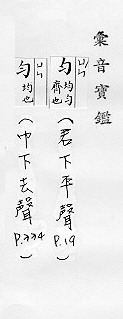 彙音寶鑑
ㄩㄣˊ
勻 均勻齊也
(君下平聲) P.19
ㄩㄣˊ
勻 均也
(巾下去聲) P.334